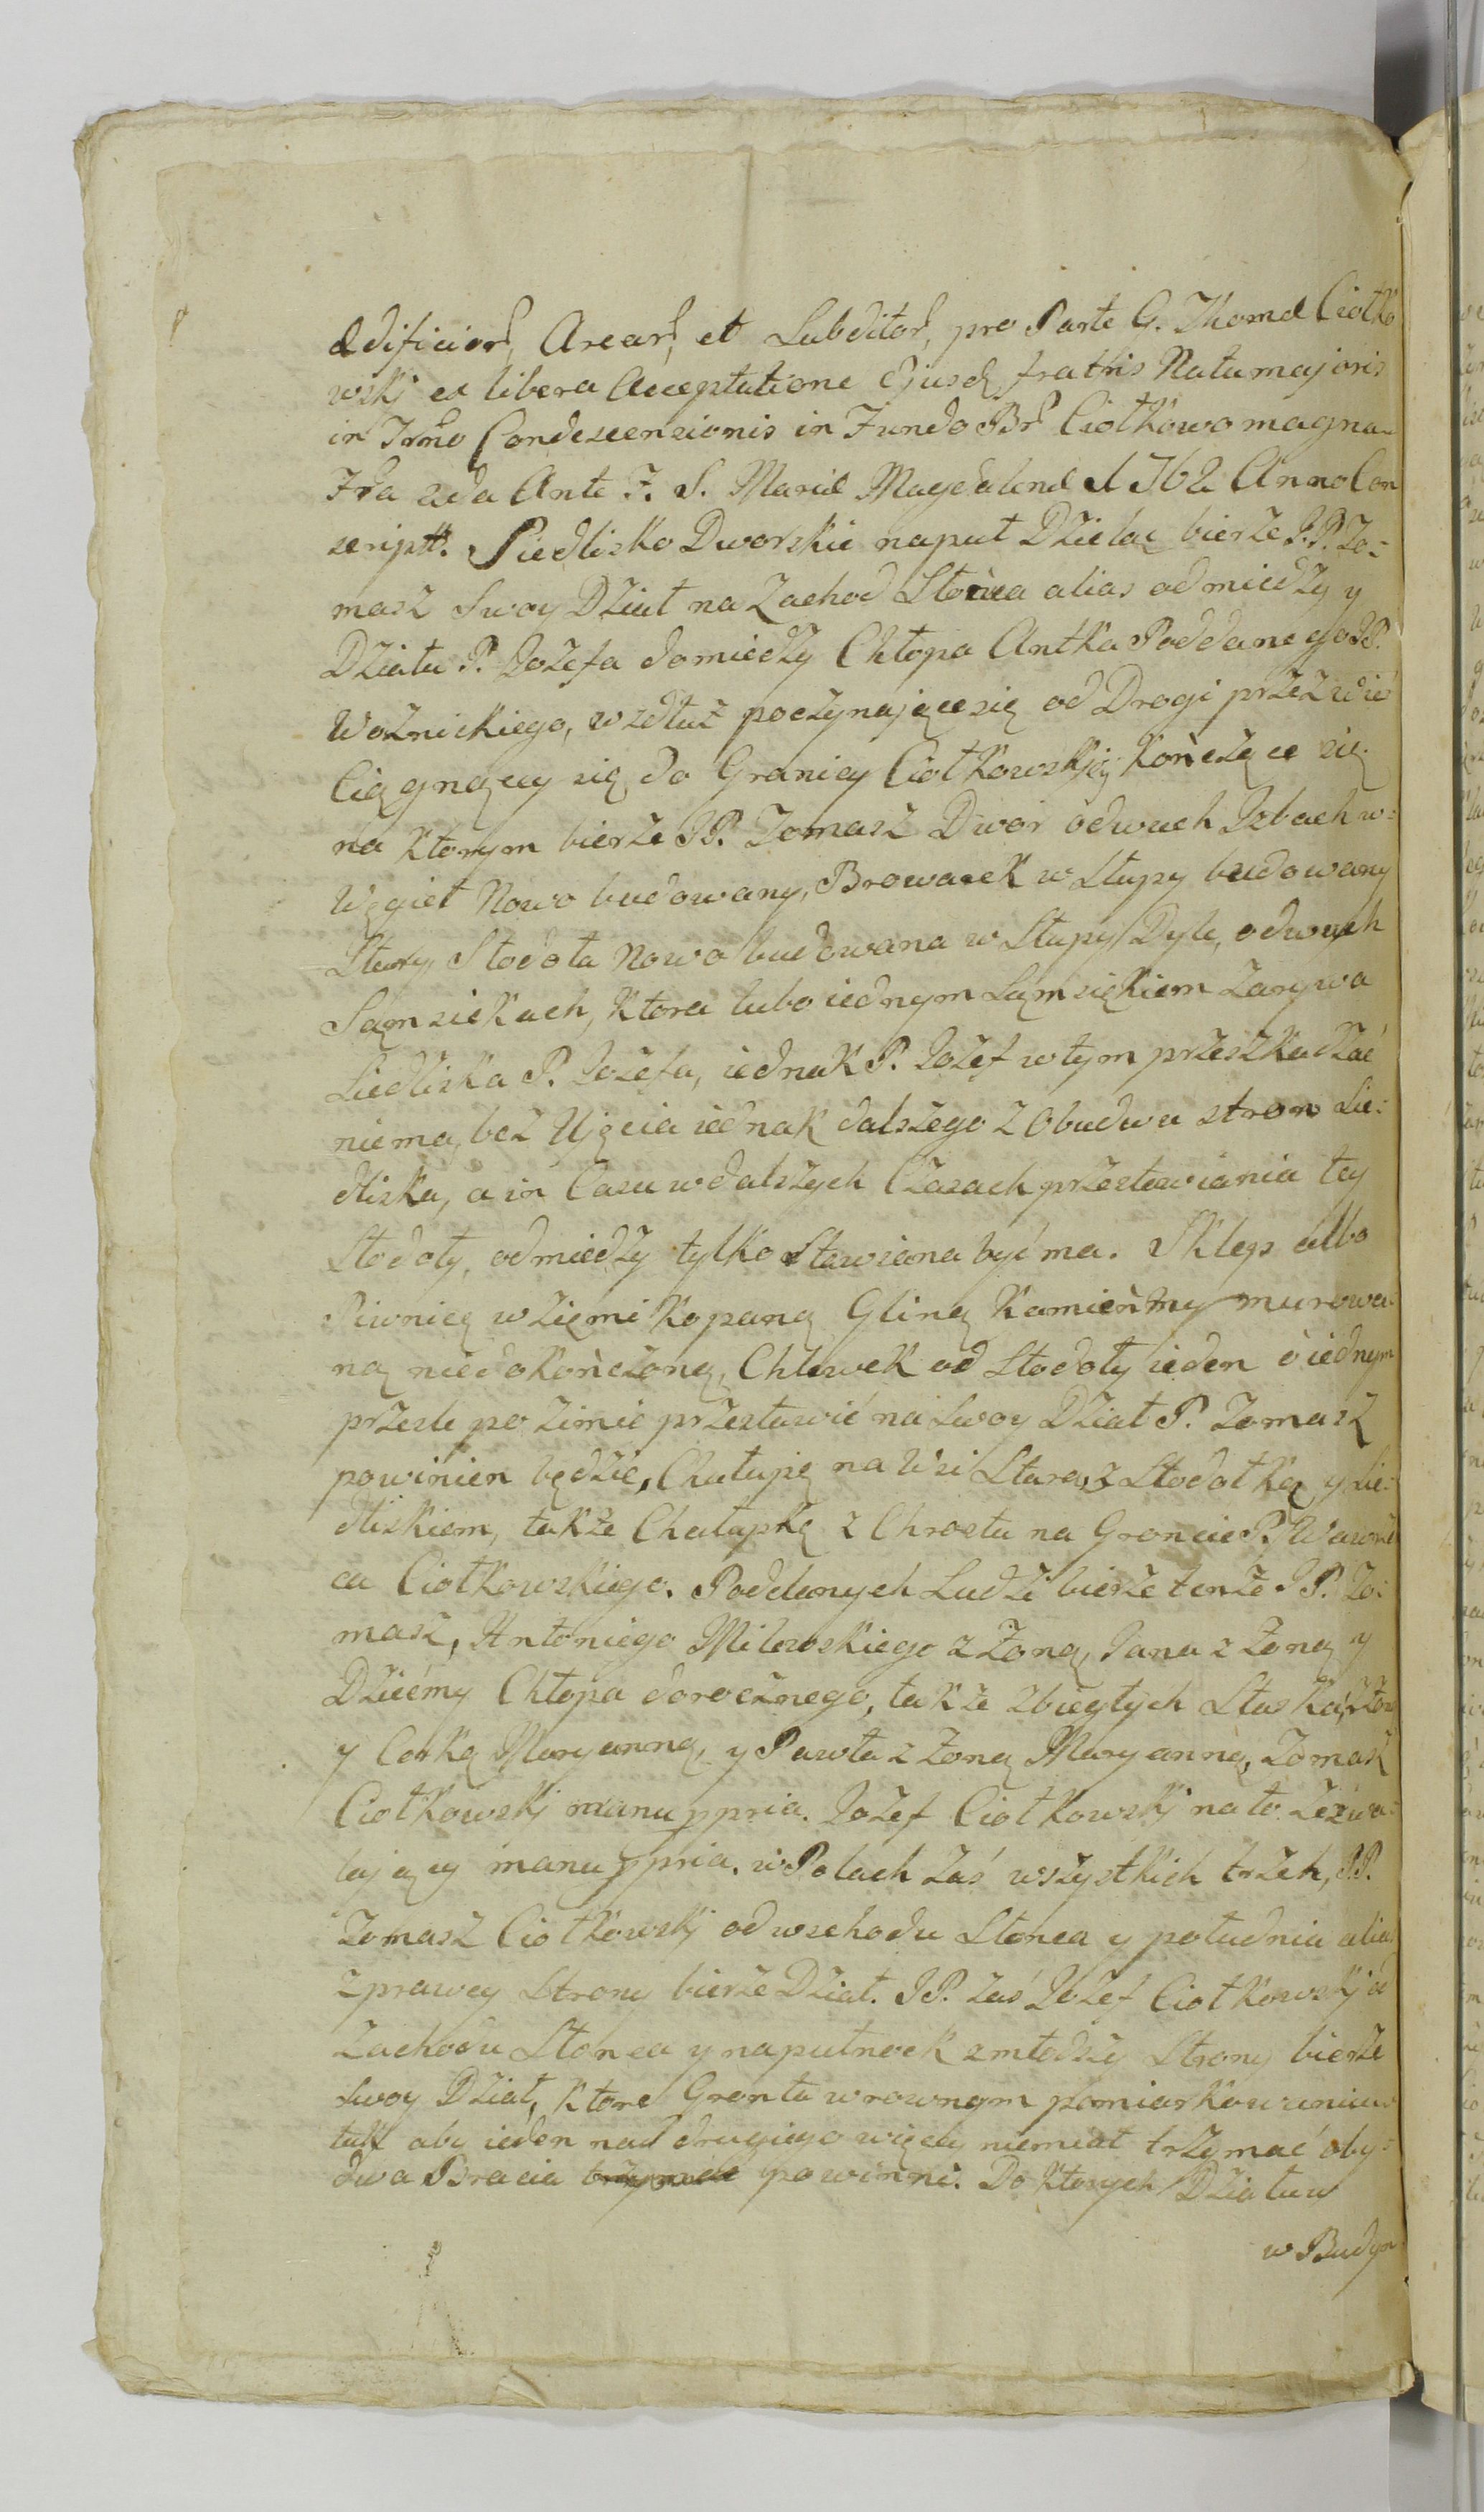 Ædificior, Arear, et Subditor, pro Parte G. Thomæ Ciołko
wskj ex libera Acceptatione Ejusd fratris Natu majoris
in Trmo Condescensionis in Fundo Br Ciołkowo magna
Fra 2da Ante F. S. Mariæ Magdalenæ 1762 Anno Con
script. Siedlisko Dworskie naput Dzieląc bierze J.P. To=
masz Swoy Dział na Zachod Słońca alias odmiedzy y
Działu P. Jozefa domiedzy Chłopa Antka Poddanego JP.
Woznickiego, wzdłuż poczynające się od Drogi przez wieś
Ciągnący się do Granicy Ciołkowskjey kończące się
na ktorym bierze JP. Tomasz Dwor odwuch Izbach w=
Węgieł Nowo budowany, Browarek w Słupy budowany
Stary, Stodoła Nowo budowana w Słupy Dyle, odwuch
Sąmsiekach, ktora lubo iednym Sąmsiękiem Zarywa
Siedliska P. Jozefa, iednak P. Jozef wtym przeszkadzać
niema, bez Ujęcia iednak dalszego z Obudwu stron Sie=
dliska, a in Casu wdalszych Czasach przestawiania tey
Stodoły, odmiedzy tylko Stawiana być ma. Sklep albo
Piwnicę wziemi kopaną Gliną Kamieńmy murowa=
ną niedokończoną, Chlewek od Stodoły ieden o iednym
przesle po Zimie przestawić na Swoy Dział P. Tomasz
powinien będzie, Chałupę na Wsi Starą z Stodołką y Sie=
dliskiem, także Chałupkę z Chrostu na Groncie P. Wawrze
ca Ciołkowskiego. Poddanych Ludzi bierze tenże JP. To=
masz, Antoniego Milewskiego z Zoną, Jana z Zoną y
Dziećmy Chłopa dorocznego, także zbiegłych Staska, z Zoną
y Corką Maryanną, y Pawła z Zoną Maryanną, Tomasz
Ciołkowskj manu ppria. Jozef Ciołkowskj na to Zezwa=
lający manu ppria. w Polach Zaś wszystkich trzech, JP.
Tomasz Ciołkowskj od wschodu Słonca y południa alias
z prawey Strony bierze Dział. JP. zaś Jozef Ciołkowskj od
Zachodu Słonca y napułnock zmłodszey Strony bierze
Swoy Dział, ktore Gronta wrownym pomiarkowaniu
tak aby ieden nad drugiego więcey niemiał trzymać oby=
dwa Bracia powinni. Do ktorych Działuw
w Budyn